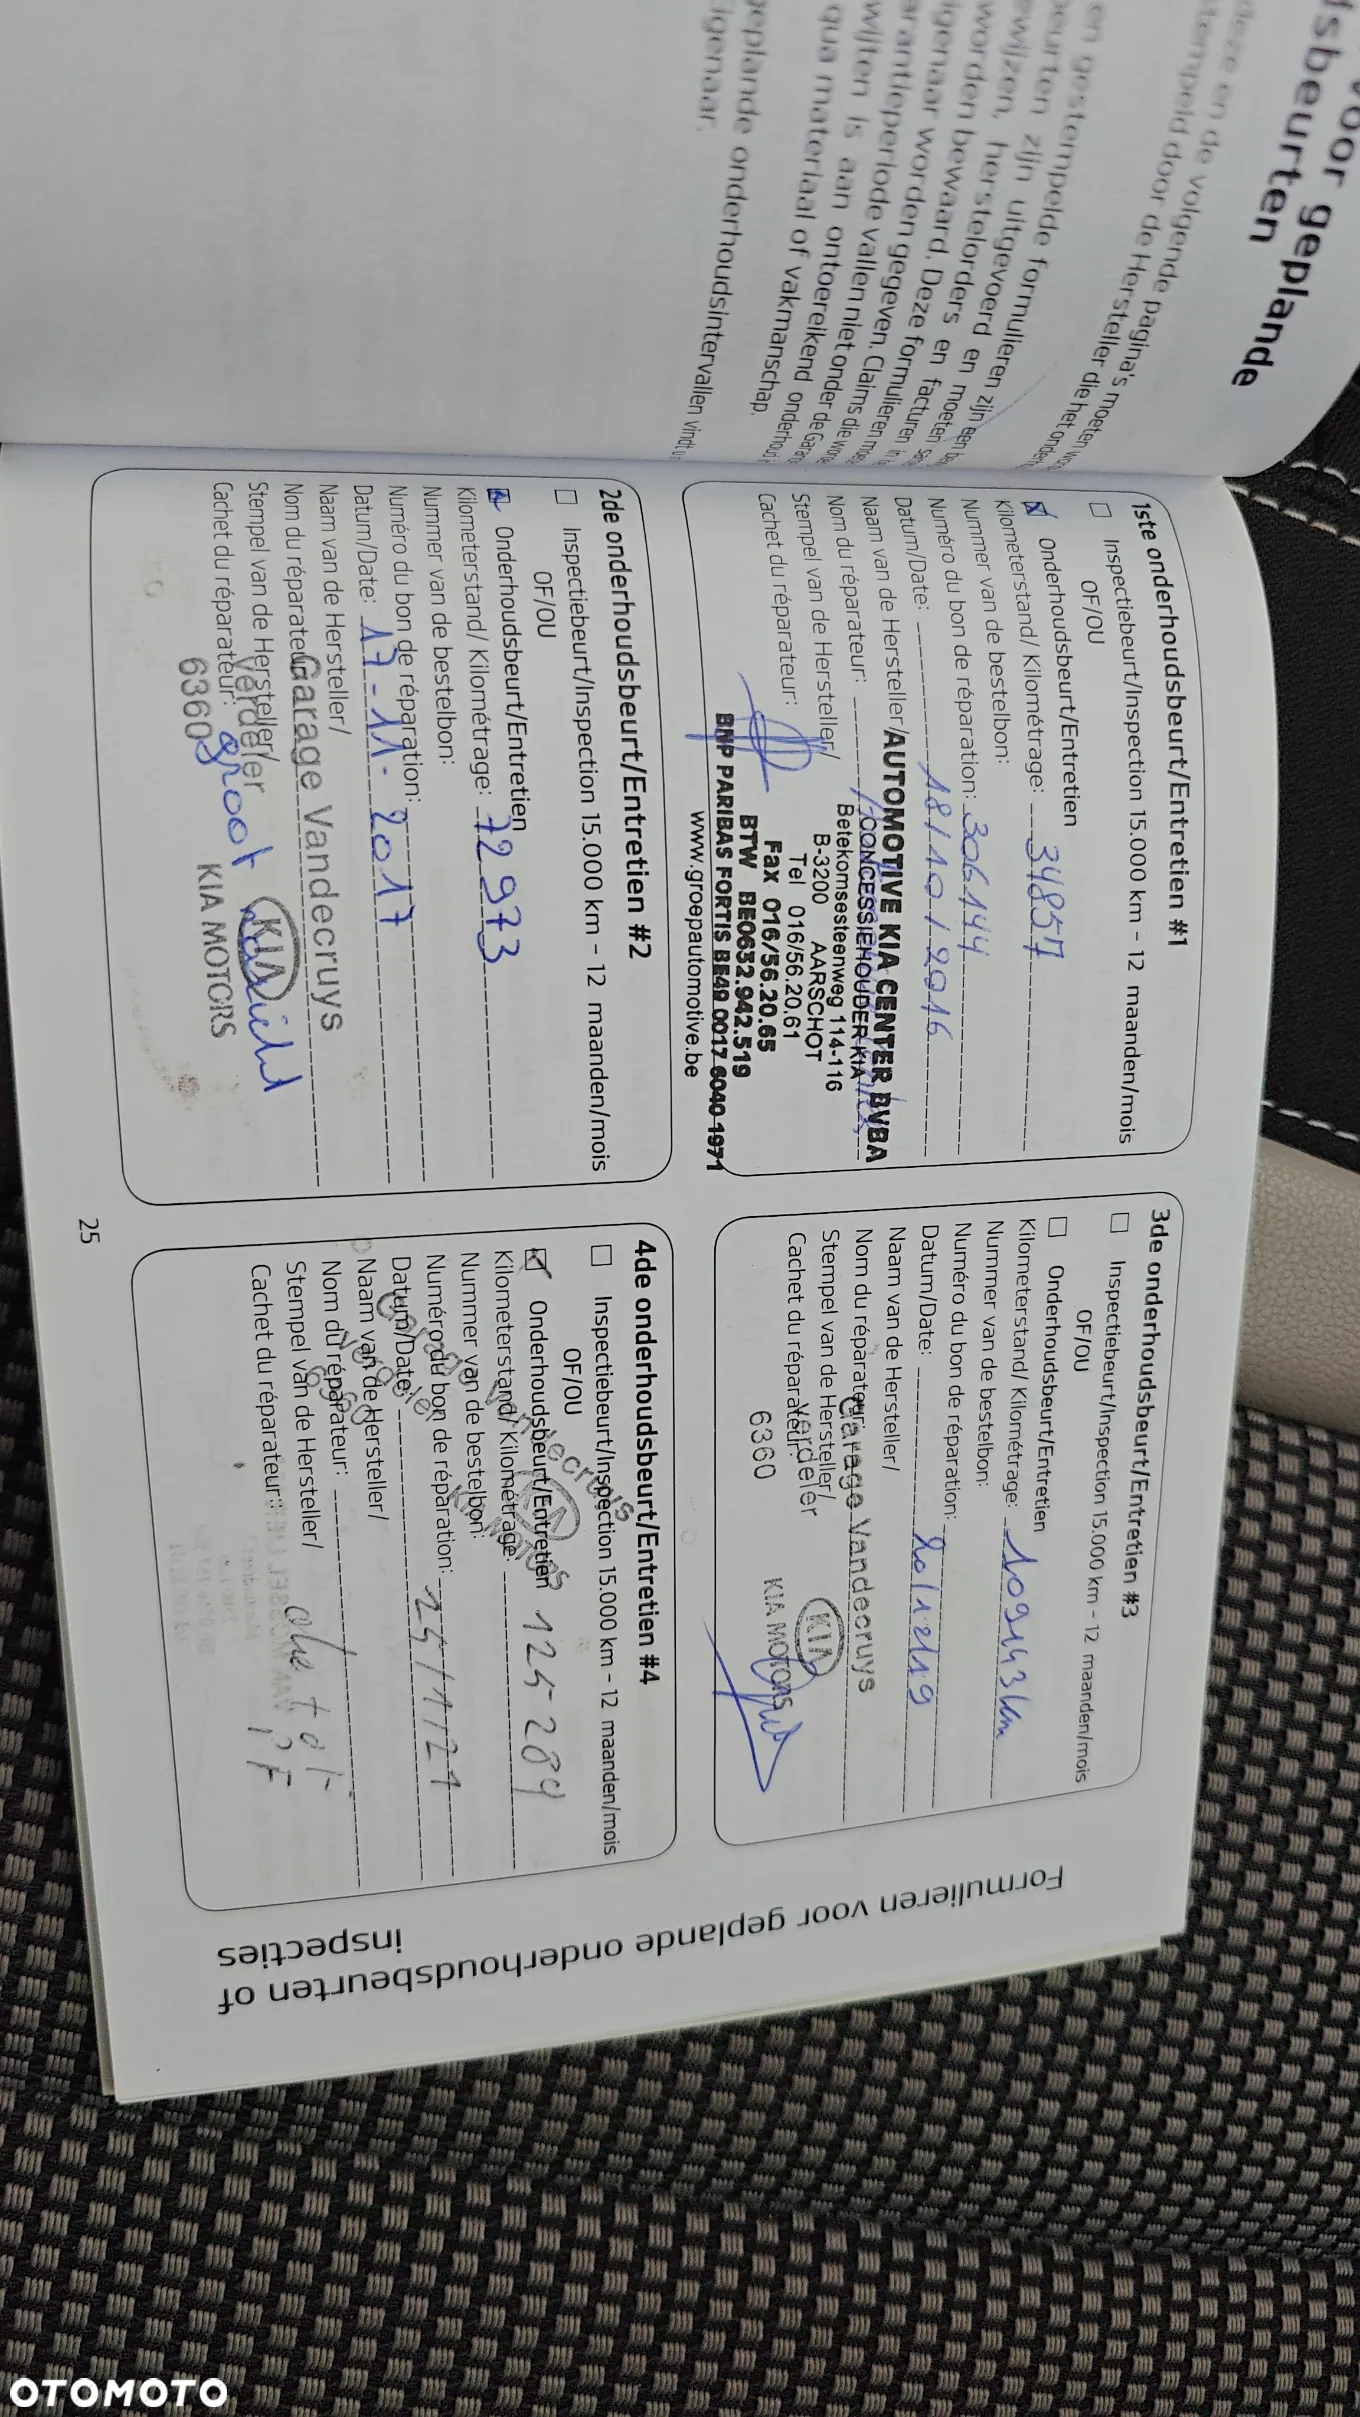 voor geplande
sbeurten
deze en de volgende pagina's moeten
stempeld door de Hersteller die het
en gestempelde formulieren zijn een
beurten zijn uitgevoerd en moeten
ewijzen, herstelorders en facturen
worden bewaard. Deze formulieren
igenaar worden gegeven. Claims die
arantieperiode vallen niet onder de
wijten is aan ontoereikend
qua materiaal of vakmanschap.
geplande onderhoudsintervallen vindt u
Eigenaar.
1ste onderhoudsbeurt/Entretien #1
Inspectiebeurt/Inspection 15.000 km – 12 maanden/mois
OF/OU
Onderhoudsbeurt/Entretien
Kilometerstand/ Kilométrage: 34857
Nummer van de bestelbon:
Numéro du bon de réparation: 306144
Datum/Date: 18/10/2016
Naam van de Hersteller/
Nom du réparateur:
Stempel van de Hersteller/
Cachet du réparateur:
AUTOMOTIVE KIA CENTER BVBA
CONCESSIEHOUDER KIA
Betekomsesteenweg 114-116
B-3200 AARSCHOT
Tel 016/56.20.61
Fax 016/56.20.65
BTW BE0632.942.519
BNP PARIBAS FORTIS BE49 0017 6040 1971
www.groepautomotive.be
2de onderhoudsbeurt/Entretien #2
Inspectiebeurt/Inspection 15.000 km – 12 maanden/mois
OF/OU
Onderhoudsbeurt/Entretien
Kilometerstand/ Kilométrage: 72973
Nummer van de bestelbon:
Numéro du bon de réparation:
Datum/Date: 17-11-2017
Naam van de Hersteller/
Nom du réparateur:
Stempel van de Hersteller/
Cachet du réparateur:
Garage Vandecruys
Verdeler
6360
KIA
KIA MOTORS
groot
3de onderhoudsbeurt/Entretien #3
Inspectiebeurt/Inspection 15.000 km – 12 maanden/mois
OF/OU
Onderhoudsbeurt/Entretien
Kilometerstand/ Kilométrage: 109143 km
Nummer van de bestelbon:
Numéro du bon de réparation:
Datum/Date: 20/12/19
Naam van de Hersteller/
Nom du réparateur:
Stempel van de Hersteller/
Cachet du réparateur:
Garage Vandecruys
Verdeler
6360
KIA
KIA MOTORS
4de onderhoudsbeurt/Entretien #4
Inspectiebeurt/Inspection 15.000 km – 12 maanden/mois
OF/OU
Onderhoudsbeurt/Entretien
Kilometerstand/ Kilométrage: 125289
Nummer van de bestelbon:
Numéro du bon de réparation:
Datum/Date: 25/1/21
Naam van de Hersteller/
Nom du réparateur:
Stempel van de Hersteller/
Cachet du réparateur:
Garage Vandecruys
Verdeler
6360
KIA
KIA MOTORS
25
Formulieren voor geplande onderhoudsbeurten of
inspecties
OTOMOTO